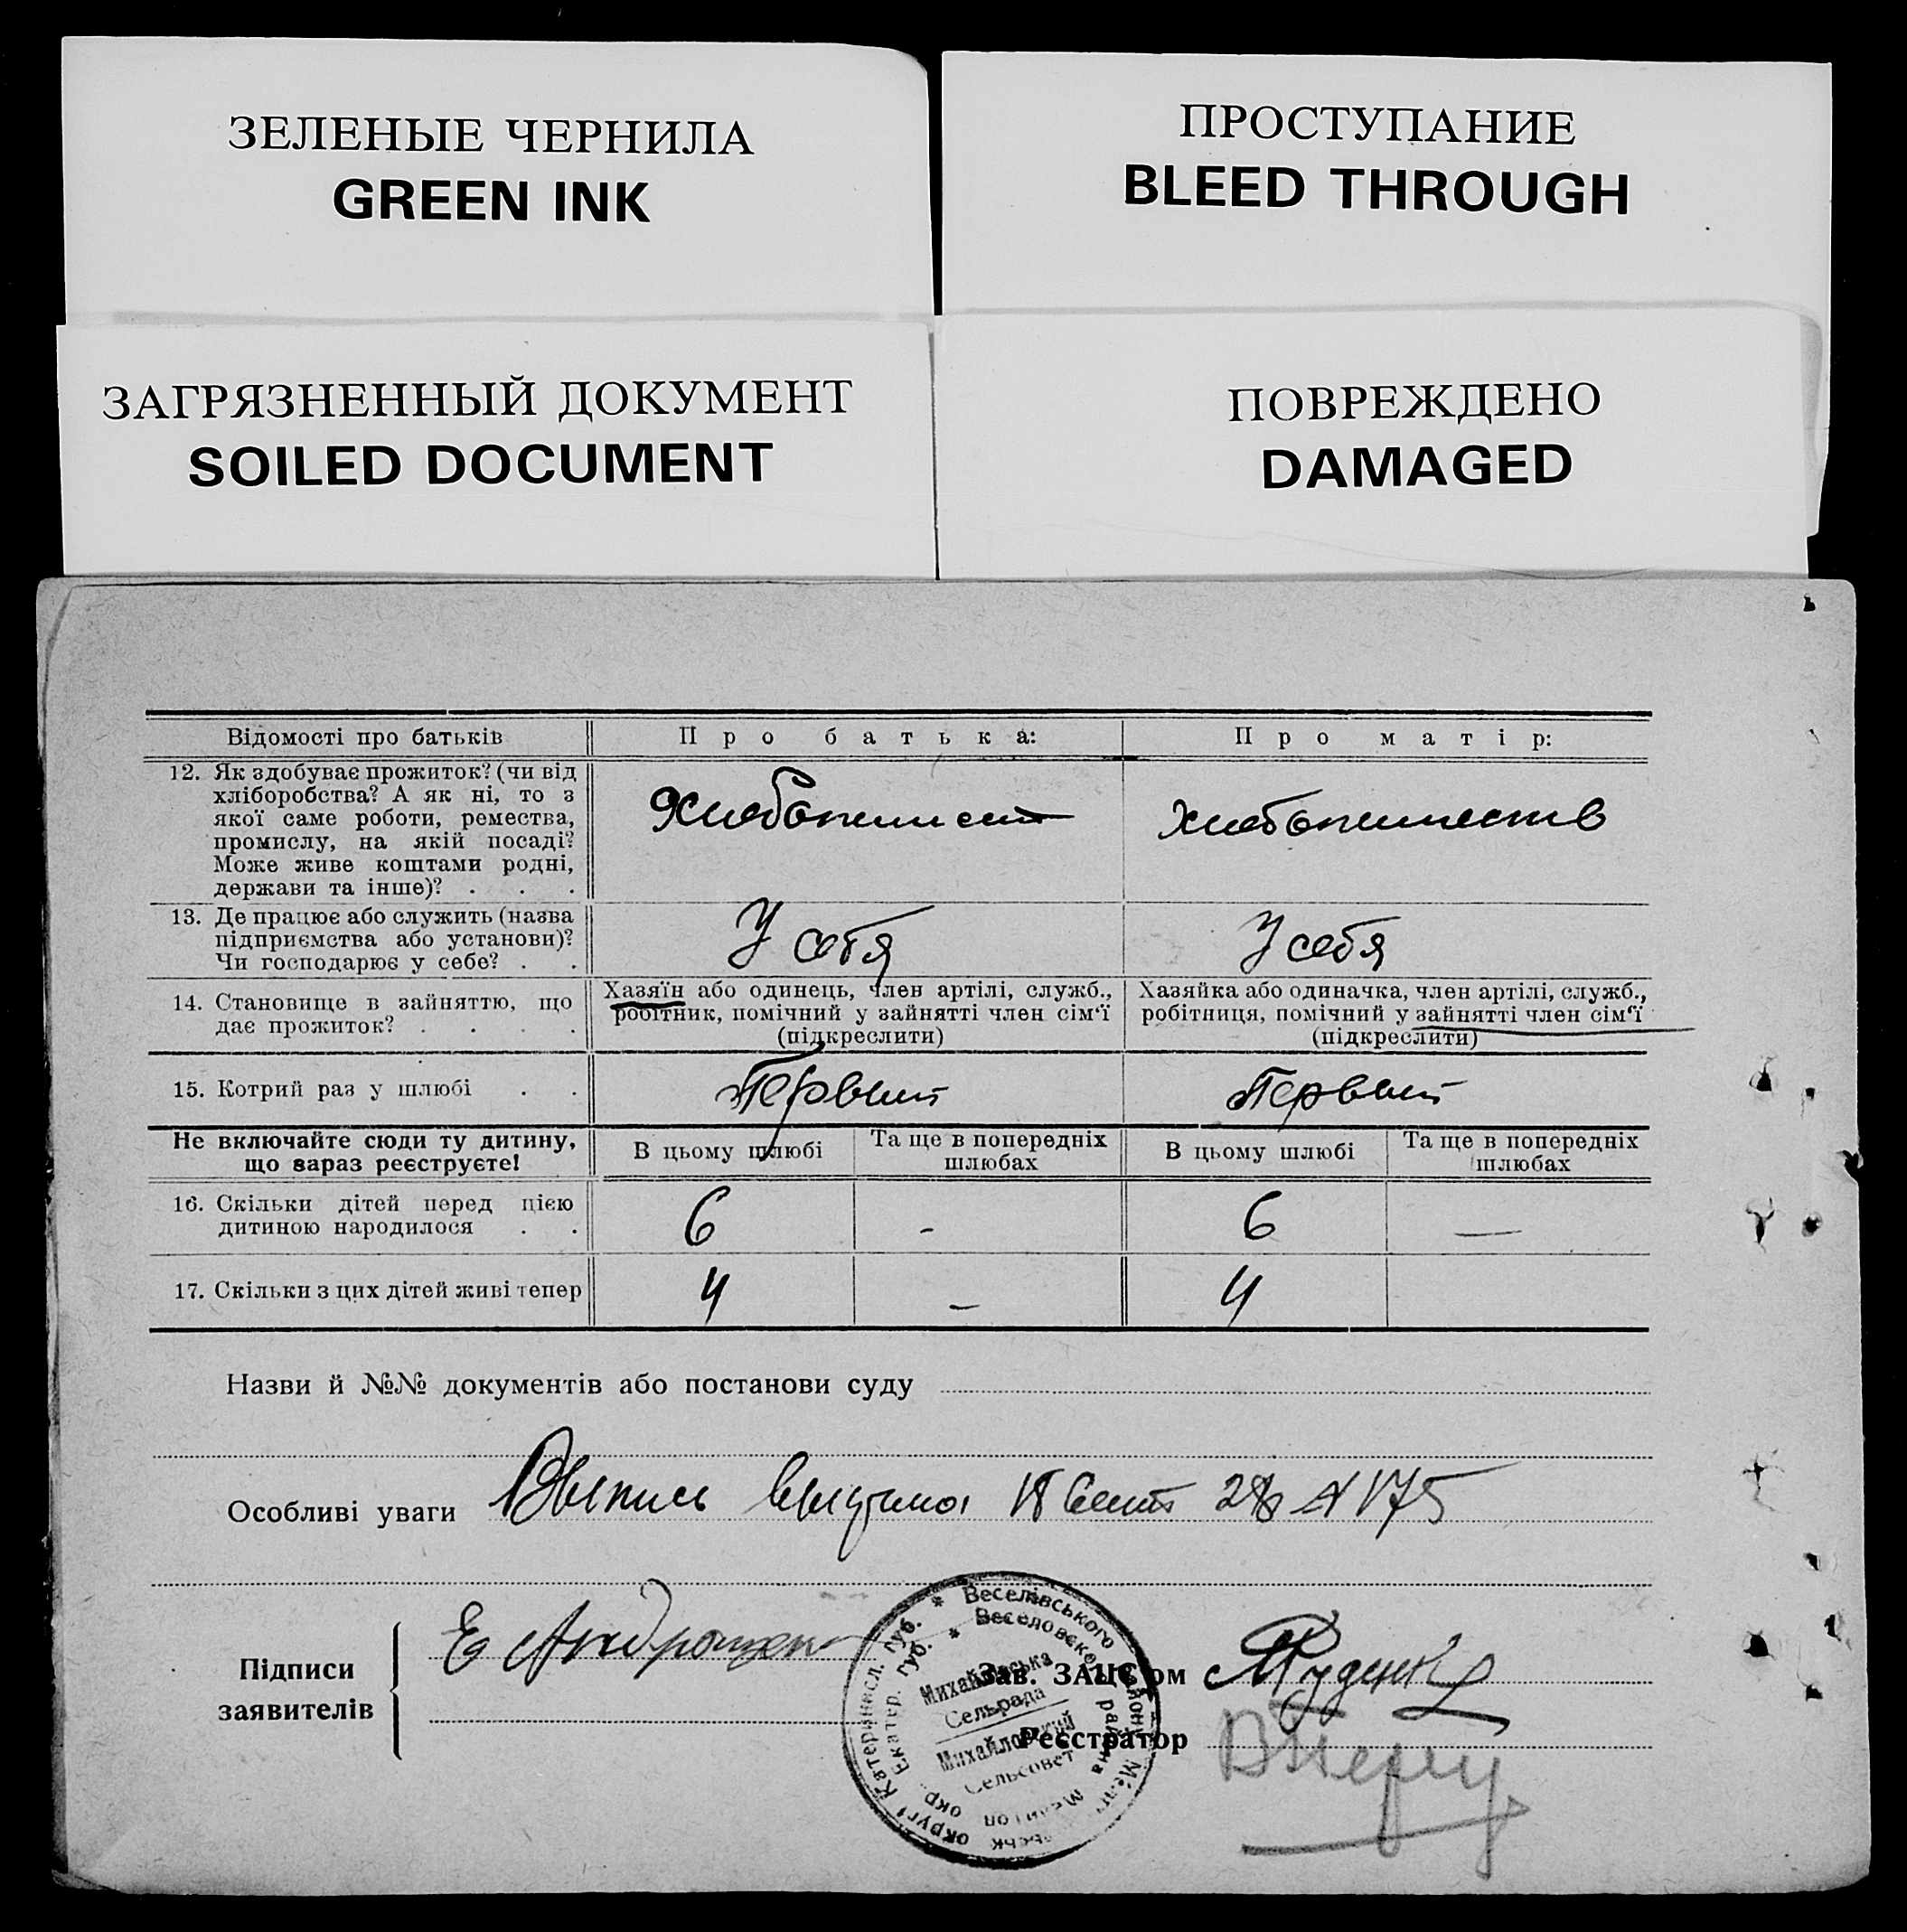 ЗЕЛЕНЫЕ ЧЕРНИЛА
GREEN INK
ПРОСТУПАНИЕ
BLEED THROUGH
ЗАГРЯЗНЕННЫЙ ДОКУМЕНТ
SOILED DOCUMENT
ПОВРЕЖДЕНО
DAMAGED
Відомості про батьків
Про батька:
Про матір:
12. Як здобуває прожиток? (чи від
хліборобства? А як ні, то з
якої саме роботи, ремества,
промислу, на якій посаді?
Може живе коштами родні,
держави та інше)? . . .
Хлебопашеств
13. Де працює або служить (назва
підприємства або установи)?
Чи господарює у себе? . .
У себя
У себя
14. Становище в зайняттю, що
дає прожиток? . . . .
Хазяїн або одинець, член артілі, служб.,
робітник, помічний у зайнятті член сім'ї
(підкреслити)
Хазяйка або одиначка, член артілі, служб.,
робітниця, помічний у зайнятті член сім'ї
(підкреслити)
15. Котрий раз у шлюбі . .
Первый
Первый
Не включайте сюди ту дитину,
що зараз реєструєте!
В цьому шлюбі
Та ще в попередніх
шлюбах
В цьому шлюбі
Та ще в попередніх
шлюбах
16. Скільки дітей перед цією
дитиною народилося . .
6
-
6
—
17. Скільки з цих дітей живі тепер
4
-
4
Назви й №№ документів або постанови суду
Особливі уваги Выпись выдана 18 Сент 28 N 175
Підписи
заявителів
Е
Зав. ЗАЦС'ом
Руденко
Реєстратор
Веселівського
Веселовского района
Михайлівська
Сельрада
Михайловский
Сельсовет
округі Катеринисл. губ.
окр. Екатер. губ.